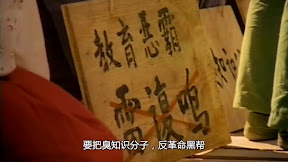 教育恶霸
雷浪鸣
要把臭知识分子，反革命黑帮